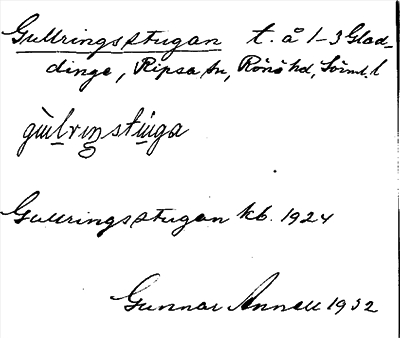 Gullringsstugan t. å 1-3 Glad-
dinge, Ripsa sn, Rönö hd, Sörml. l
gùlrιŋstùga
Gullringsstugan kb. 1924
Gunnar Annell 1932